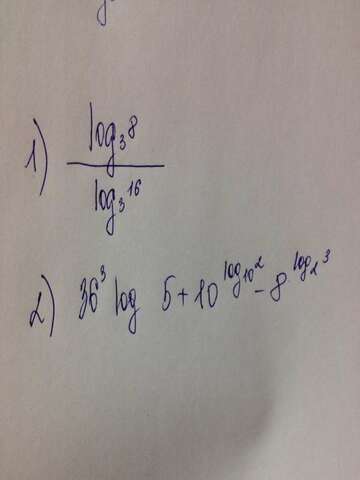 1) log₃8
log₃16
2) 36³ log 5 + 10^(log₁₀2) - 8^(log₂3)